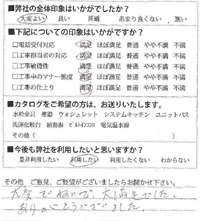 ■弊社の全体印象はいかがでしたか?
大変よい 良い 普通 あまり良くない 悪い
■下記についての印象はいかがですか?
□電話受付対応 満足 ほぼ満足 普通 やや不満 不満
□工事担当者の対応 満足 ほぼ満足 普通 やや不満 不満
□工事説明度 満足 ほぼ満足 普通 やや不満 不満
□工事中のマナー態度 満足 ほぼ満足 普通 やや不満 不満
□工事の仕上り 満足 ほぼ満足 普通 やや不満 不満
■カタログをご希望の方は、お送りいたします。
水栓金具 便器 ウォシュレット システムキッチン ユニットバス
洗面化粧台 給湯器 電気温水器
その他( )
■今後も弊社を利用したいと思いますか?
是非利用したい 利用したい 利用したくない わからない
その他 ご意見、ご要望がございましたらお聞かせ下さい。
大変 ていねいで 大満足でした。
ありがとうございました。